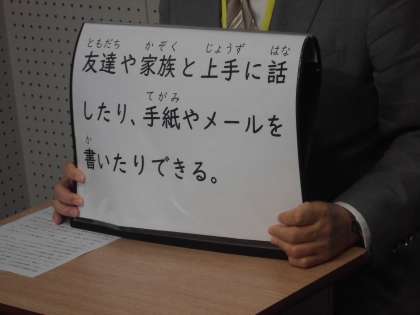 ともだち かぞく じょうず はな
友達や家族と上手に話
てがみ
したり、手紙やメールを
か
書いたりできる。